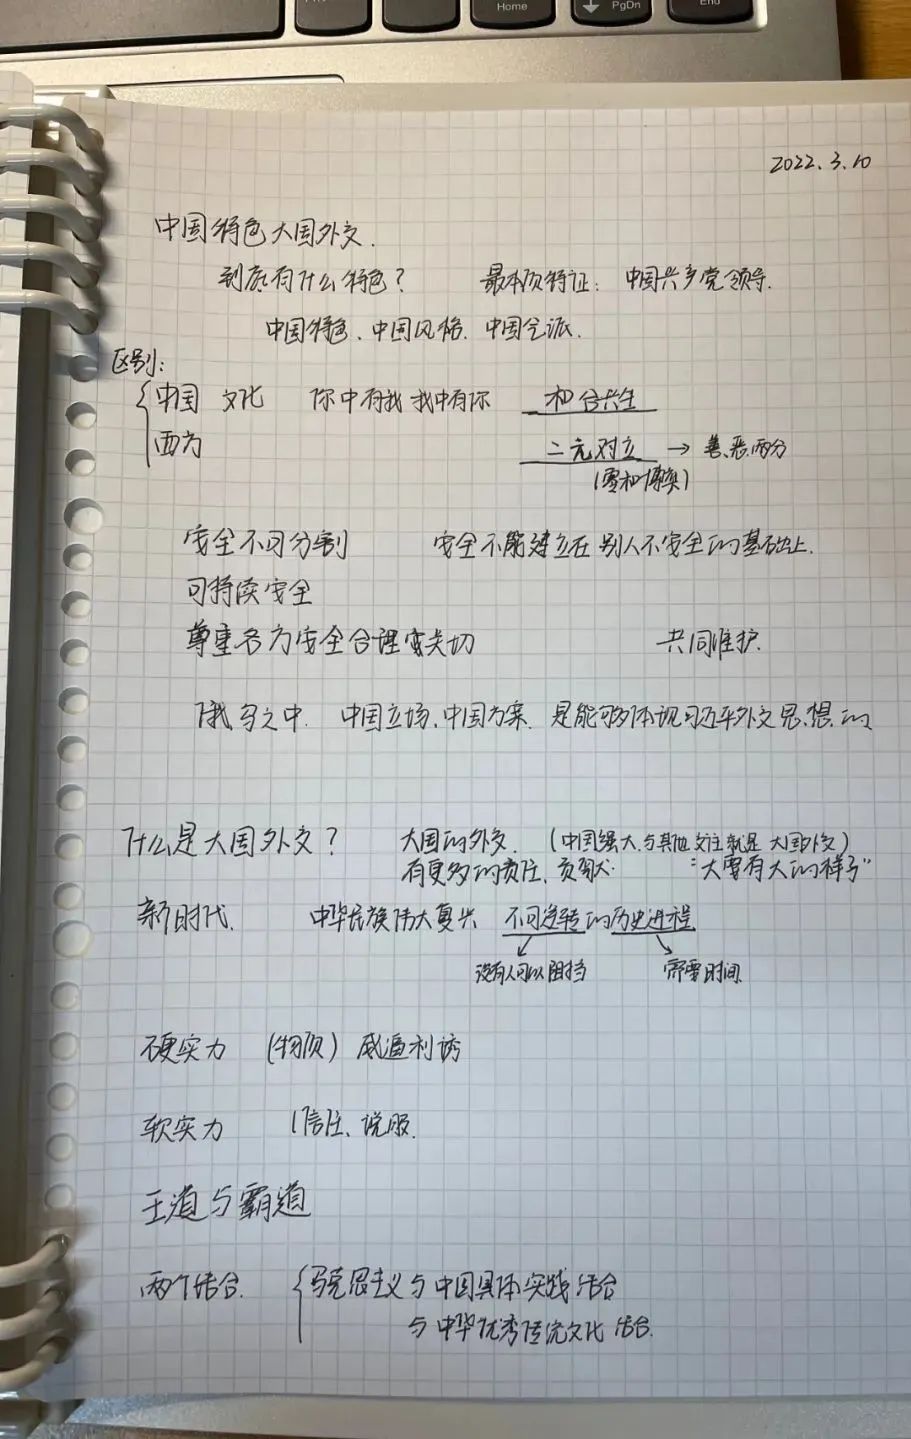 Home
PgDn
End
2022.3.10
中国特色大国外交.
到底有什么特色？ 最本质特征：中国共产党领导.
中国特色、中国风格、中国气派.
区别：
中国 文化 你中有我 我中有你 和合共生
西方 二元对立 → 善、恶两分
(零和博弈)
安全不可分割 安全不能建立在别人不安全的基础上.
可持续安全
尊重各方安全合理关切 共同维护.
俄乌之中. 中国立场、中国方案、是能够体现习近平外交思想的
什么是大国外交？ 大国的外交. (中国强大、与其他交往就是大国外交)
有更多的责任、贡献. “大要有大的样子”
新时代. 中华民族伟大复兴 不可逆转的历史进程
没有人可以阻挡 需要时间.
硬实力 (物质) 威逼利诱
软实力 信任、说服.
王道与霸道
两个结合. 马克思主义与中国具体实践结合
与中华优秀传统文化结合.